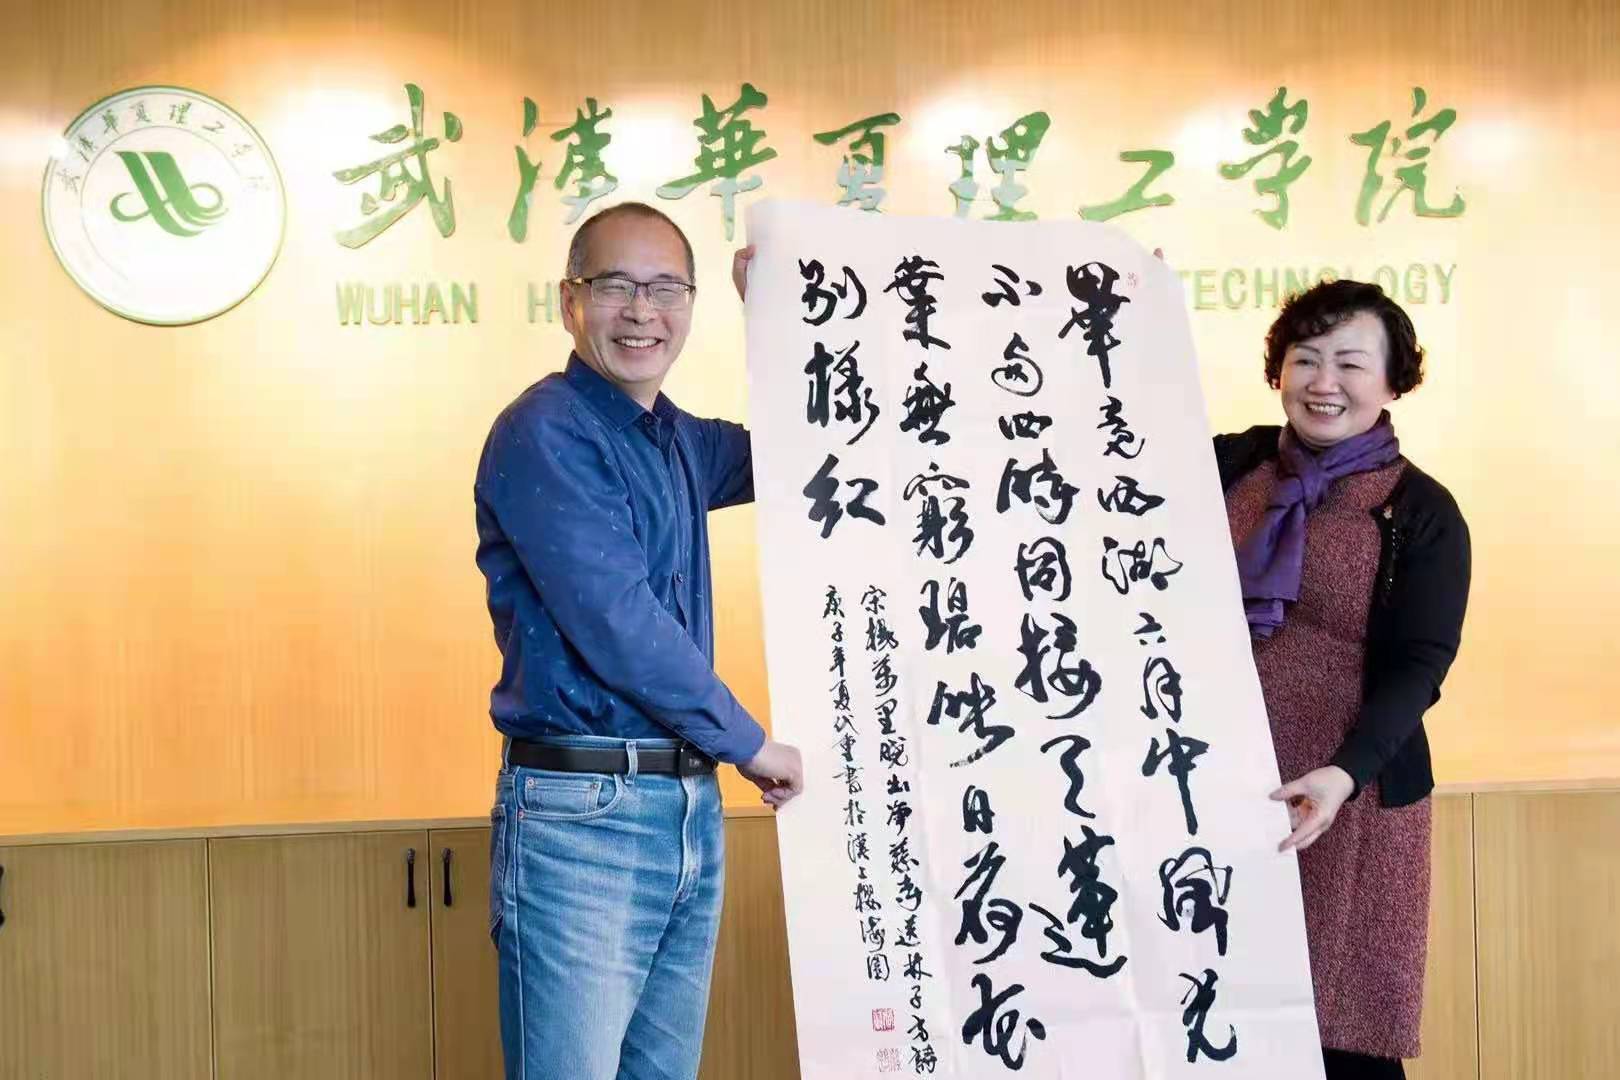 武漢華夏理工学院
武漢華夏理工学院
WUHAN H
TECHNOLOGY
畢竟西湖六月中風光
不與四時同接天蓮
葉無窮碧映日荷花
別樣紅
宋楊萬里曉出淨慈寺送林子方詩
庚子年夏代重書於漢上櫻海園